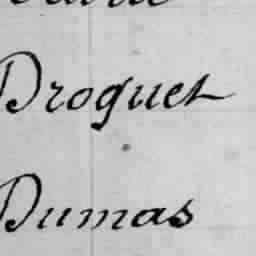 Droguet
Dumas